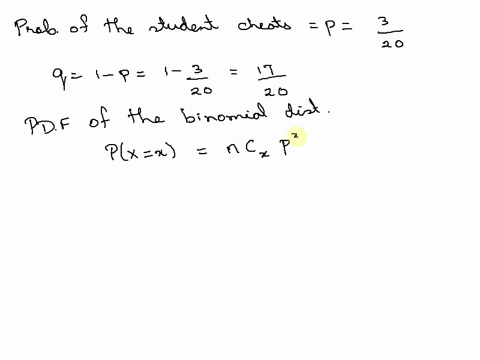 Prob. of the student cheats = P = 3/20
q = 1 - P = 1 - 3/20 = 17/20
P.D.F of the binomial dist.
P(X=x) = nCx P^x